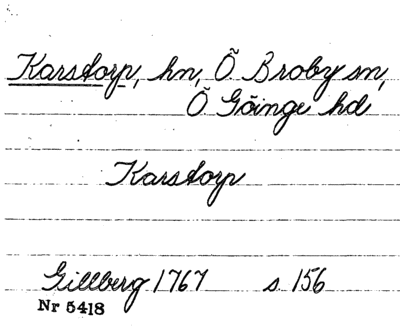 Karstorp, hn, Ö Broby sn,
Ö Göinge hd
Karstorp
Gillberg 1767 s 156
Nr 5418